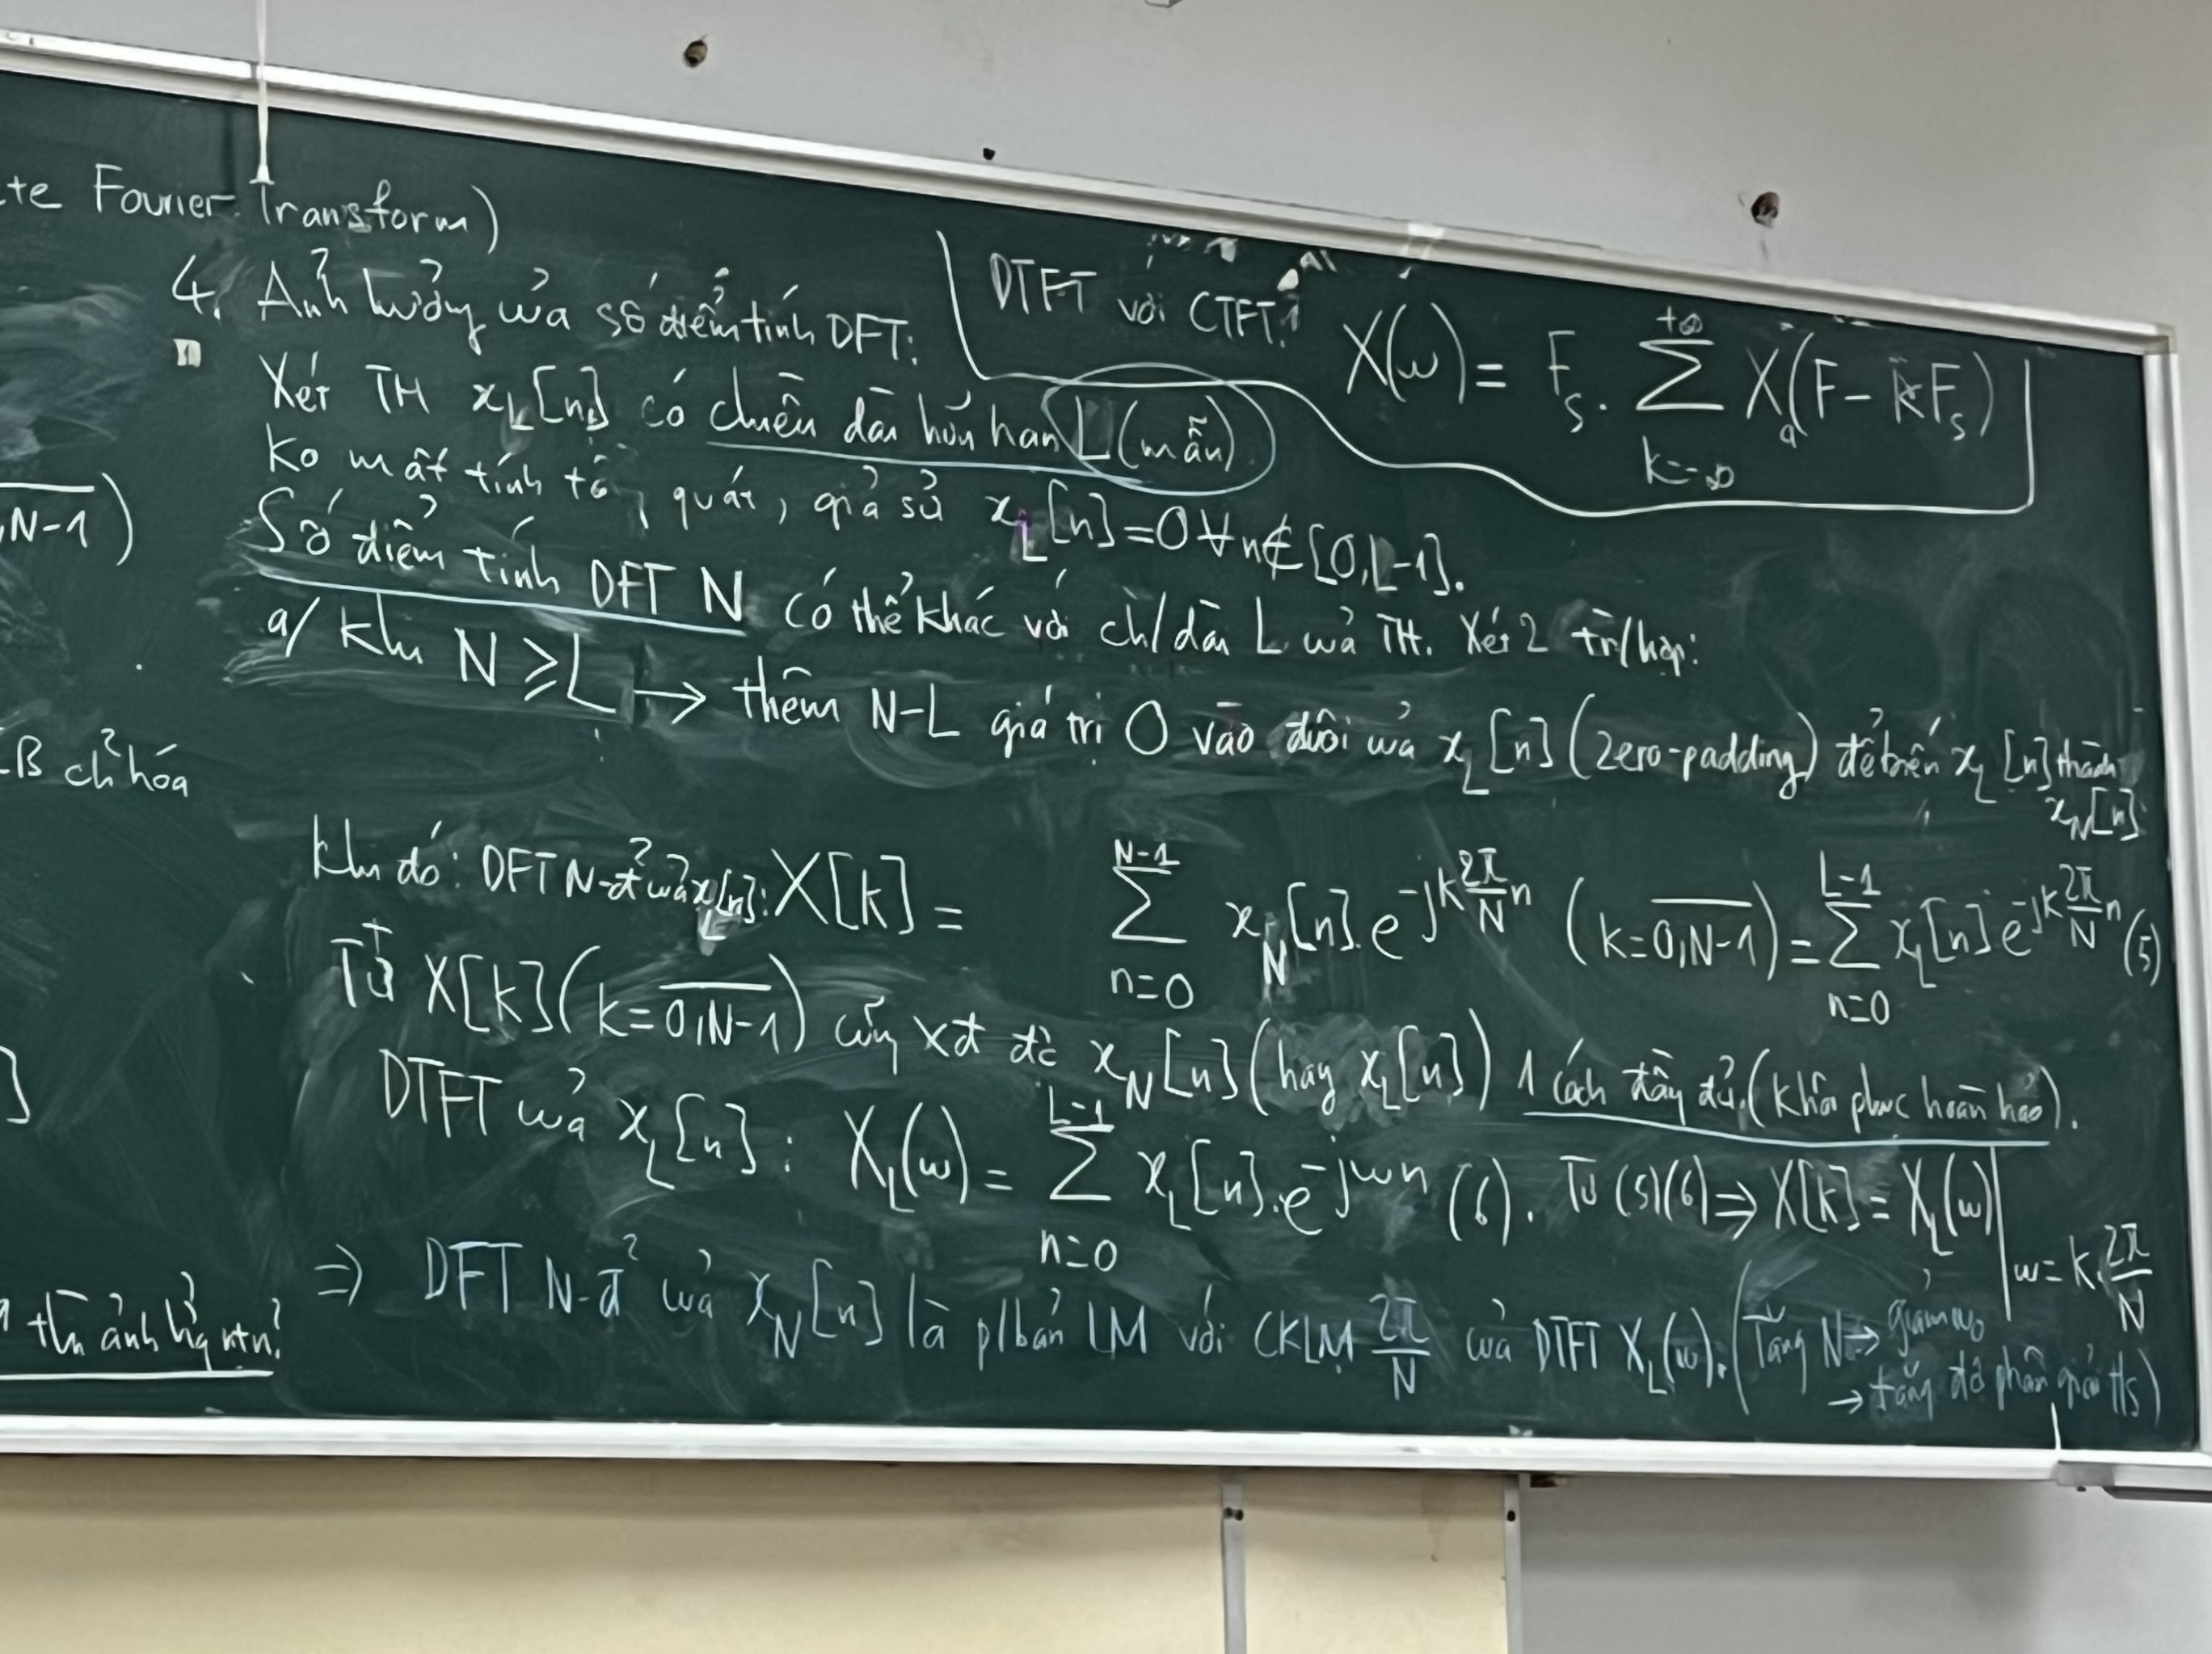 te Fourier Transform)
4. Ảnh hưởng của số điểm tính DFT:
DTFT với CTFT:
X(ω) = F_s . ∑_{k=-∞}^{+∞} X_a(F - kF_s)
Xét TH x_L[n] có chiều dài hữu hạn L (mẫu)
Ko mất tính tổng quát, giả sử x_L[n] = 0 ∀ n ∉ [0, L-1].
Số điểm tính DFT N có thể khác với ch/dài L của TH. Xét 2 tr/hợp:
a/ Khi N ⩾ L ↦ thêm N-L giá trị 0 vào đuôi của x_L[n] (zero-padding) để biến x_L[n] thành
x_N[n]:
Khi đó: DFT N-đ' của x_L[n]: X[k] = ∑_{n=0}^{N-1} x_N[n].e^{-jk\frac{2π}{N}n} (k = \overline{0,N-1}) = ∑_{n=0}^{L-1} x_L[n]e^{-jk\frac{2π}{N}n} (5)
Từ X[k] (k = \overline{0,N-1}) cũng xđ đc x_N[n] (hay x_L[n]) 1 cách đầy đủ. (khôi phục hoàn hảo).
DTFT của x_L[n]: X_L(ω) = ∑_{n=0}^{L-1} x_L[n].e^{-jωn} (6). Từ (5)(6) ⇒ X[k] = X_L(ω)|_{ω = k.\frac{2π}{N}}
⇒ DFT N-đ' của x_N[n] là p/bản LM với CKLM \frac{2π}{N} của DTFT X_L(ω). (Tăng N → giảm ω_0
→ tăng độ phân giải t/s)
,N-1)
B ch' hóa
]
thì ảnh hg ntn?